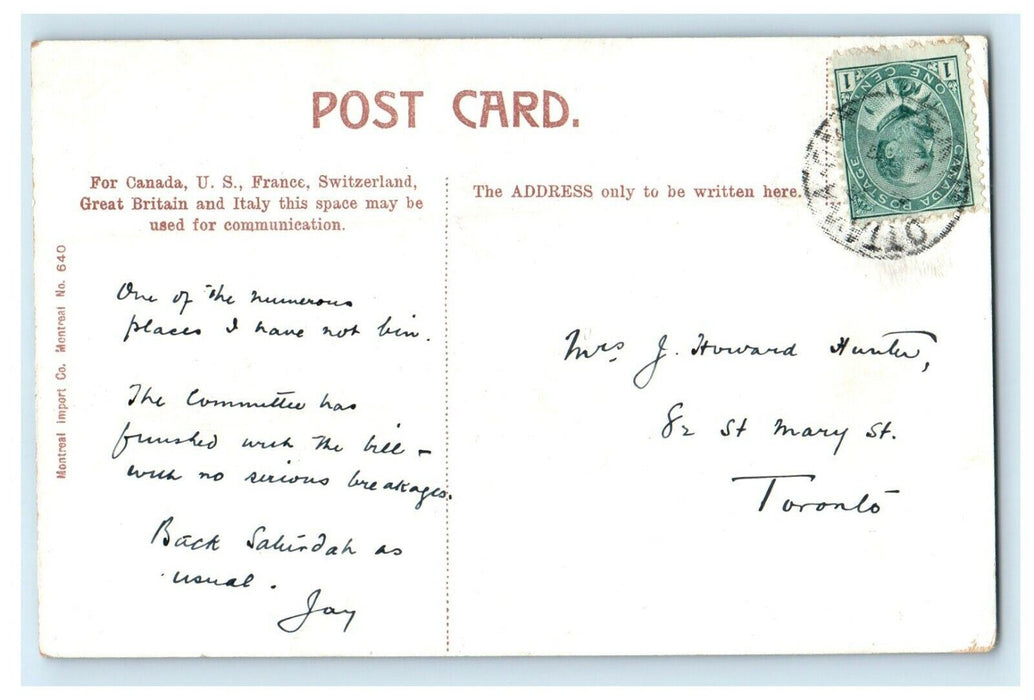 POST CARD.
For Canada, U. S., France, Switzerland,
Great Britain and Italy this space may be
used for communication.
The ADDRESS only to be written here.
Montreal Import Co. Montreal No. 640
One of the numerous
places I have not bin.
The Committee has
finished with the bill –
with no serious breakages.
Back Saturdah as
usual.
Jay
Mrs J. Howard Hunter,
82 St Mary St.
Toronto
CANADA POSTAGE
ONE CENT
1
1
OTTAWA